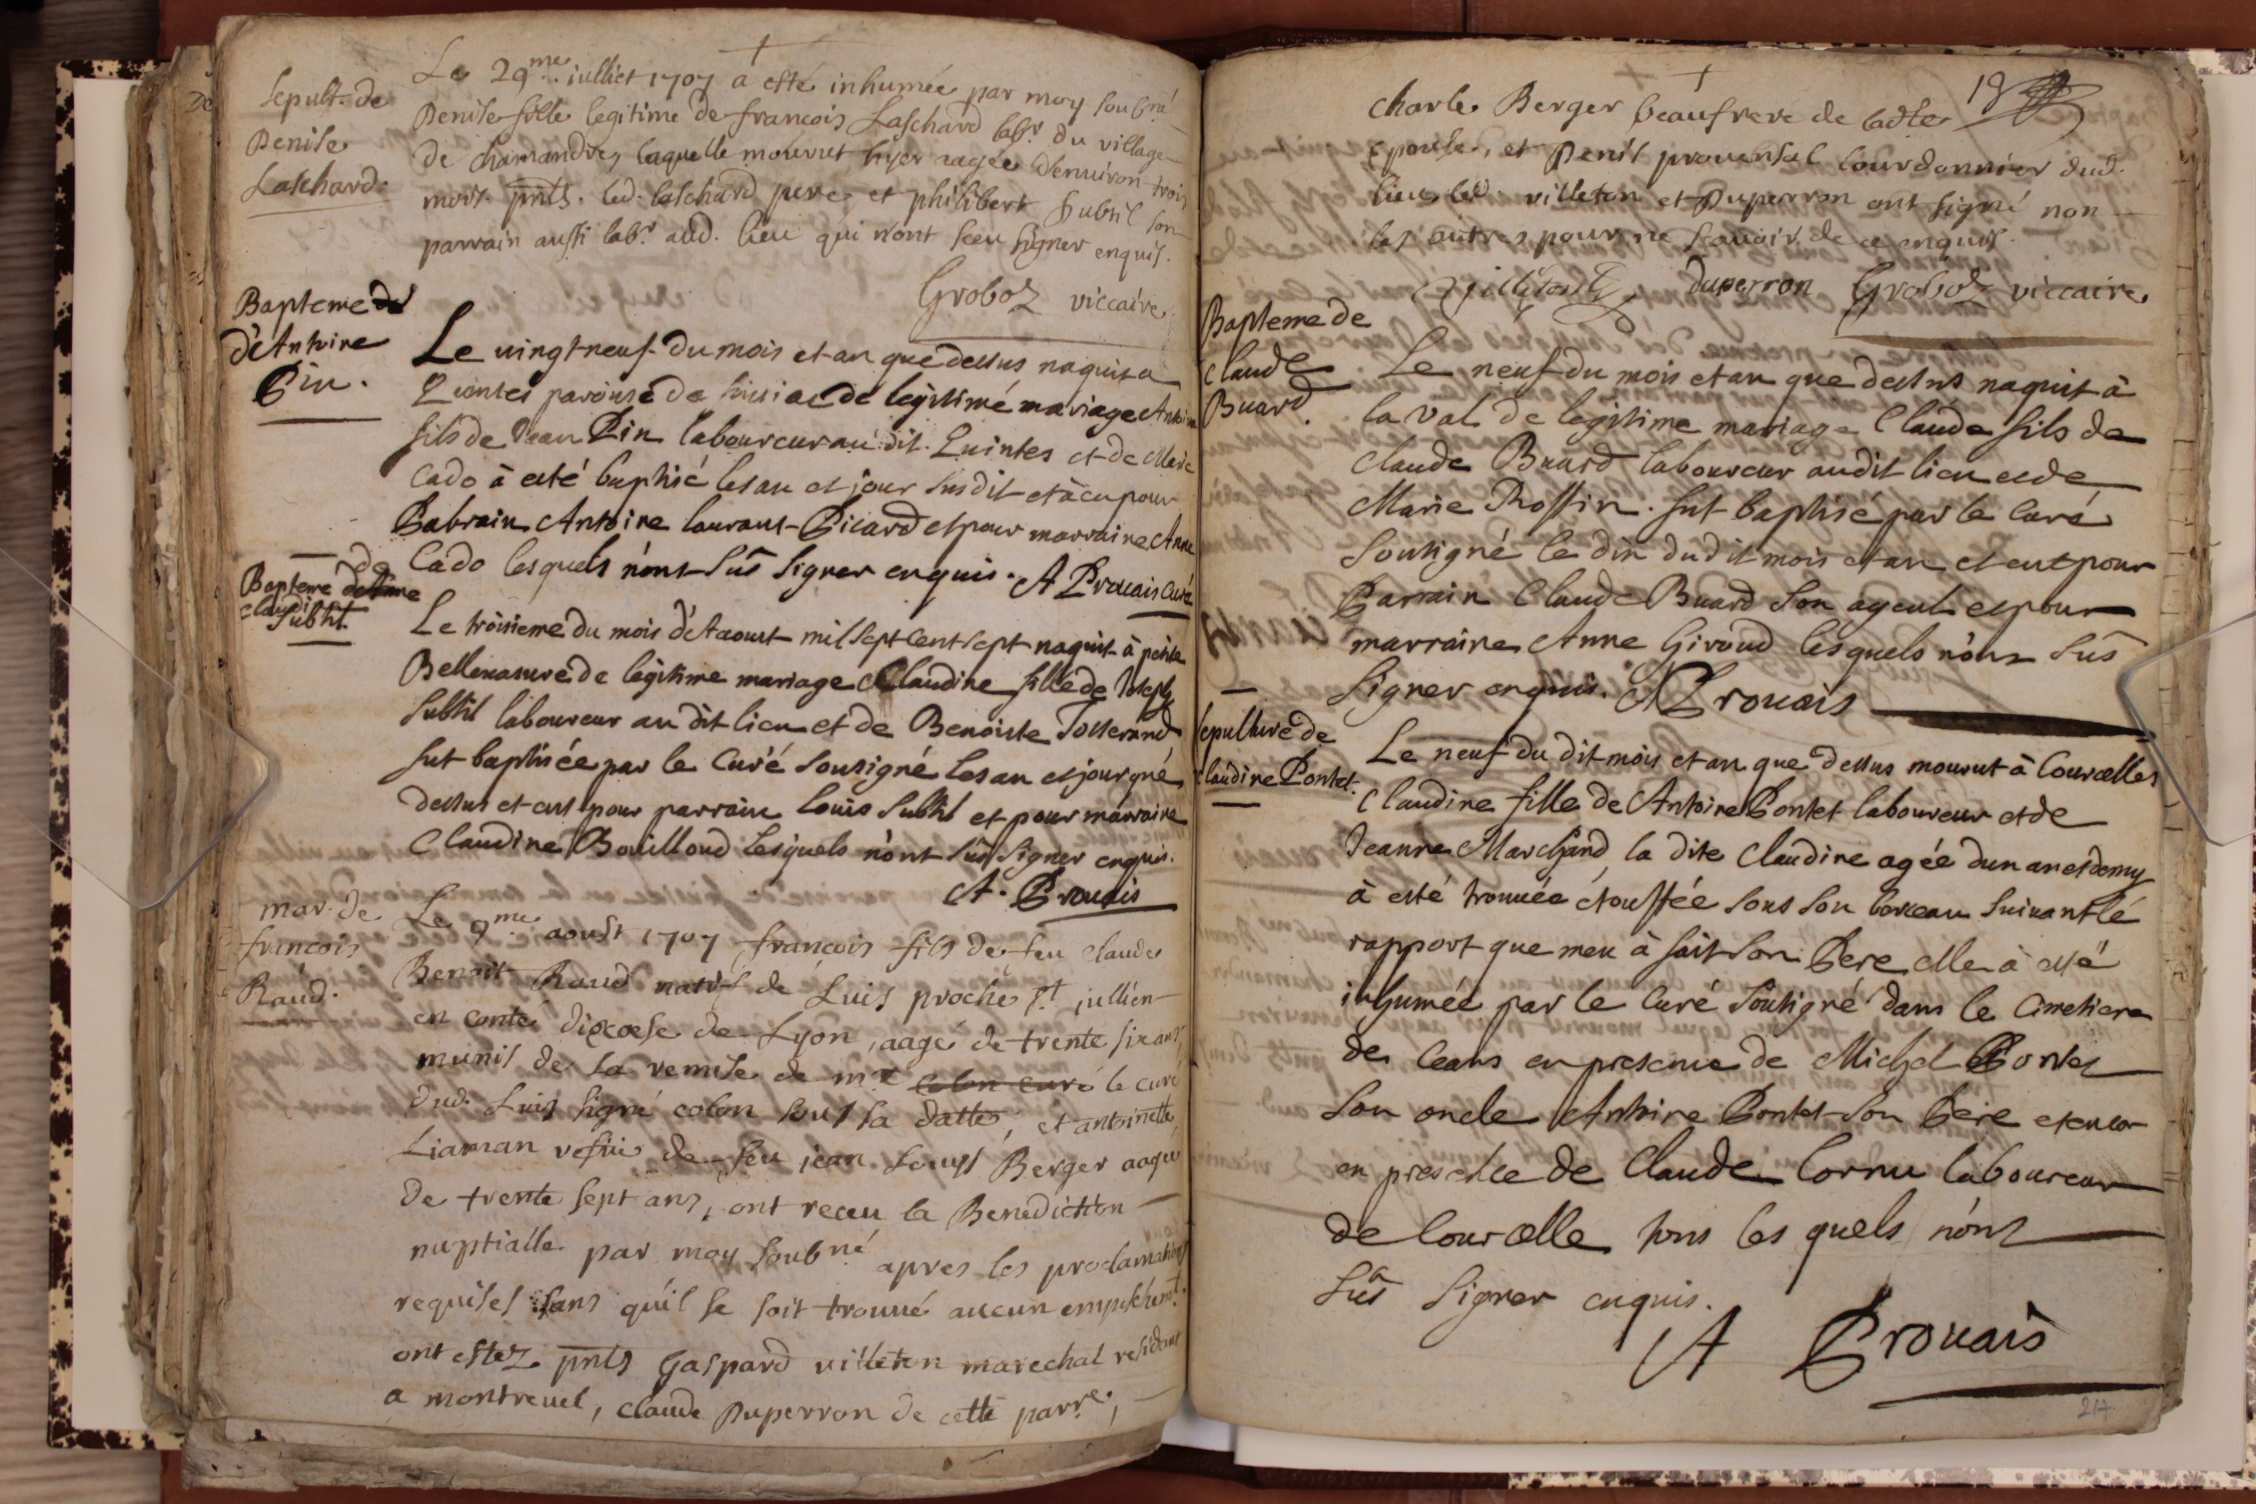 Sepult. de
Denise
Laschard.
Le 29me. iulliet 1707 a esté inhumée par moy soubné
Denise fille legitime de francois Laschard labr. du village
de chamandre, laquelle mourut hyer aagée denuiron trois
mois. pnts. led. laschard pere et philibert subtil son
parrain aussi labr. aud. lieu qui n'ont sceu signer enquis.
Groboz viccaire
Bapteme
d'Antoine
Pin.
Le uingt neuf du mois et an que dessus naquit a
Quintes paroisse de de legitime mariage Antoine
fils de Jean Pin laboureur au dit Quintes et de Marie
Cado à esté baptisé les an et jour susdit et à eu pour
Pabrain Antoine laurans Picard et pour marraine Anne
Cado lesquels n'ont sûs signer enquis. A Prouais curé
Bapteme de
Claudine
Subtil
Le troisieme du mois d'Aaoust mil sept cent sept naquit à petite
Bellenasure de legitime mariage Claudine fille de Joseph
Subtil laboureur au dit lieu et de Benoiste Josserand
fut baptisée par le Curé sousigné les an et jour que
dessus et eut pour parrain louis Subtil et pour marraine
Claudine Bouilloud lesquels n'ont sûs signer enquis.
A. Prouais
mar. de
francois
Raud.
Le 9me. aoust 1707 francois fils de feu claude
Benoit Raud natif de Luis proche st. jullien
en conté dioxcese de Lyon, aagé de trente six ans
munis de la remise de mre colon curé le curé
dud. Luis signé colon sous sa datte, et antoinette
Liaman vefue de feu jean louys Berger aagée
de trente sept ans, ont receu la Benediction
nuptialle par moy soubné. apres les proclamations
requises sans qu'il se soit trouué aucun empeschemt.
ont estez pnts Gaspard villeton marechal residant
a montreuel, claude Duperron de cette parre.,
19
charle Berger beaufrere de ladte
epouse, et Denis prouensal courdonnier dud.
lieu led. villeton et Duperron ont signé non
les autres pour ne scauoir de ce enquis.
Villeton duperron Groboz viccaire
Bapteme de
Claude
Buard.
Le neuf du mois et an que dessus naquit à
la val de legitime mariage Claude fils de
Claude Buard laboureur audit lieu et de
Marie Roffin. fut baptisé par le Curé
sousigné le dix dudit mois et an et eut pour
Parrain Claude Buard son ayeul et pour
marraine Anne Giroud lesquels n'ont sûs
signer enquis. A Prouais
Sepulture de
Claudine Pontet.
Le neuf du dit mois et an que dessus mourut à Courcelles
Claudine fille de Antoine Pontet laboureur et de
Jeanne Marchand la dite Claudine agée dun an et demy
à esté trouuée étouffée sous son berceau suiuant le
rapport que men à fait son Pere elle à esté
inhumée par le Curé sousigné dans le Cimetiere
de ceans en presence de Michel Pontet
son oncle Antoine Pontet son Pere et encor
en presence de Claude Cornu laboureur
de Courcelle tous les quels n'ont
sûs signer enquis.
A Prouais
214